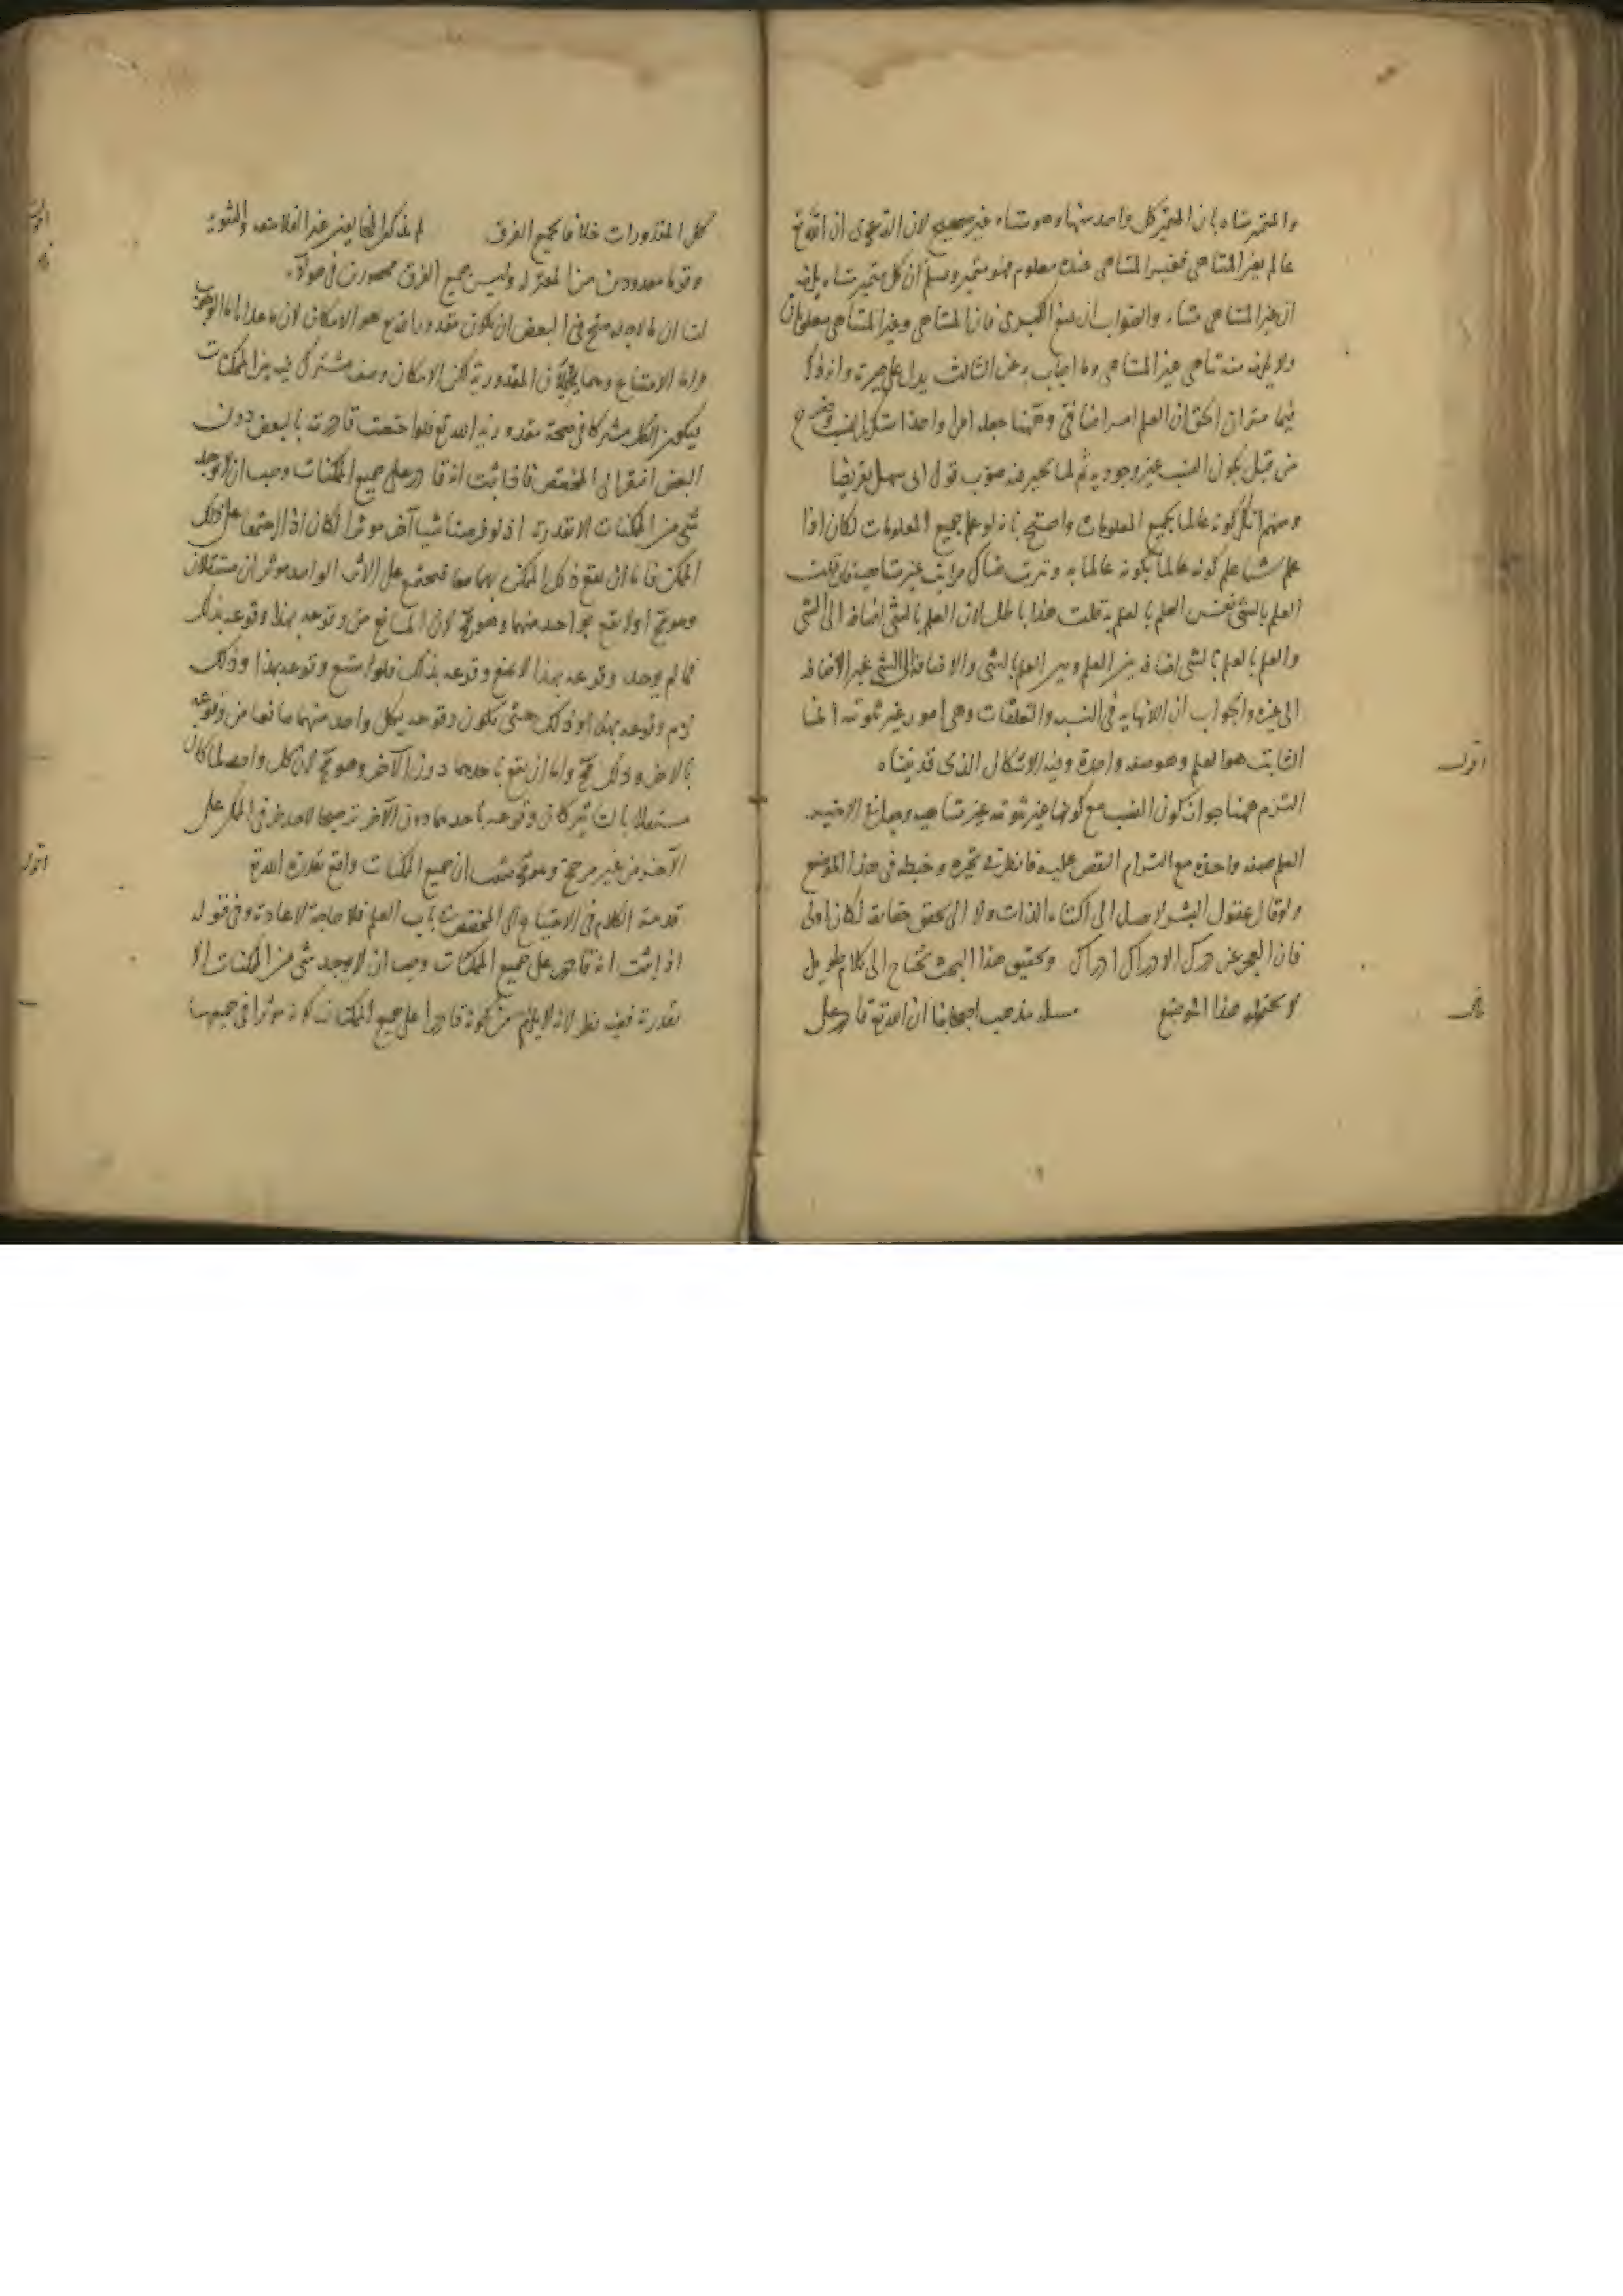 والمتميز متناه بان المتميز كل واحد منها وهو متناه غير صحيح لان الدعوى ان الله تع
عالم بغير المتناهي فغير المتناهي عنده معلوم فهو متميز وسلم ان كل متميز متناه يلزمه
ان غير المتناهي متناه والصواب ان يمنع الكبرى فان المتناهي وغير المتناهي معلومان
ولا يلزم منه تناهي غير المتناهي وما اجاب به عن الثالث يدل على حيرته وانه ذكر
فيما مر ان الحق ان العلم امر اضافي وههنا جعله امرا واحدا
من قبل بكون النسب غير وجودية ثم لما تحير فيه صوب قول ابي سهل
ومنهم انكر كونه عالما بجميع المعلومات واحتج بانه لو علم جميع المعلومات لكان اذا
علم شيئا علم كونه عالما بكونه عالما به وترتب هناك مراتب غير متناهية فان قلت
العلم بالشئ نفس العلم بالعلم به قلت هذا باطل لان العلم بالشئ اضافة الى الشئ
والعلم بالعلم بالشئ اضافة بين العلم وبين العلم بالشئ والاضافة الى الشئ غير الاضافة
الى غيره والجواب ان اللانهاية في النسب والتعلقات وهي امور غير ثبوتية انما
الثابت هو العلم وهو صفة واحدة وفيه الاشكال الذي قدمناه
اقول
التزم ههنا جواز كون النسب مع كونها غير ثبوتية غير متناهية
العلم صفة واحدة مع التزام النقض عليه فانظر في تحيره وخبطه في هذا الموضع
ولو قال عقول البشر لا تصل الى اكتناه الذات ولا الى تحقق صفاته لكان اولى
فان العجز عن درك الادراك ادراك وتحقيق هذا البحث يحتاج الى كلام طويل
لا يحتمله هذا الموضع مسئلة مذهب اصحابنا ان الله تع قادر على
قال
كل المقدورات خلافا لجميع الفرق لم يذكر المخالفين غير الفلاسفة والثنوية
اقول
وقوما معدودين من المعتزلة وليس جميع الفرق محصورين في هؤلاء
قال
لنا ان ما لاجله صح في البعض ان يكون مقدورا لله تع هو الامكان لان ما عداه اما الوجوب
واما الامتناع وهما يحيلان المقدورية لكن الامكان وصف مشترك فيه بين الممكنات
فيكون الكل مشتركا في صحة مقدورية الله تع فلو اختصت قادريته بالبعض دون
البعض افتقر الى المخصص فاذا ثبت انه قادر على جميع الممكنات وجب ان لا يوجد
شئ من الممكنات الا بقدرته اذ لو فرضنا شيئا آخر مؤثرا لكان اذا اجتمعا على ذلك
الممكن فاما ان يقع ذلك الممكن بهما معا فيجتمع على الاثر الواحد مؤثران مستقلان
وهو مح او لا يقع بواحد منهما وهو مح لان المانع من وقوعه بهذا وقوعه بذاك
فما لم يوجد وقوعه بهذا لا يمتنع وقوعه بذلك فلو امتنع وقوعه بهذا وذلك
لزم وقوعه بهذا وذلك حتى يكون وقوعه بكل واحد منهما مانعا من وقوعه
بالاخر وذلك مح واما ان يقع باحدهما دون الآخر وهو مح لان كل واحد لما كان
مستقلا بالتاثير كان وقوعه باحدهما دون الآخر ترجيحا لاحد طرفي الممكن على
الآخر من غير مرجح وهو مح فثبت ان جميع الممكنات واقع بقدرة الله تع
اقول
قد مر الكلام في الاحتياج الى المخصص في باب العلم فلا حاجة الى الاعادة وفي قوله
اذا ثبت انه قادر على جميع الممكنات وجب ان لا يوجد شئ من الممكنات الا
بقدرته ففيه نظر لانه لا يلزم من كونه قادرا على جميع الممكنات كونه مؤثرا في جميعها